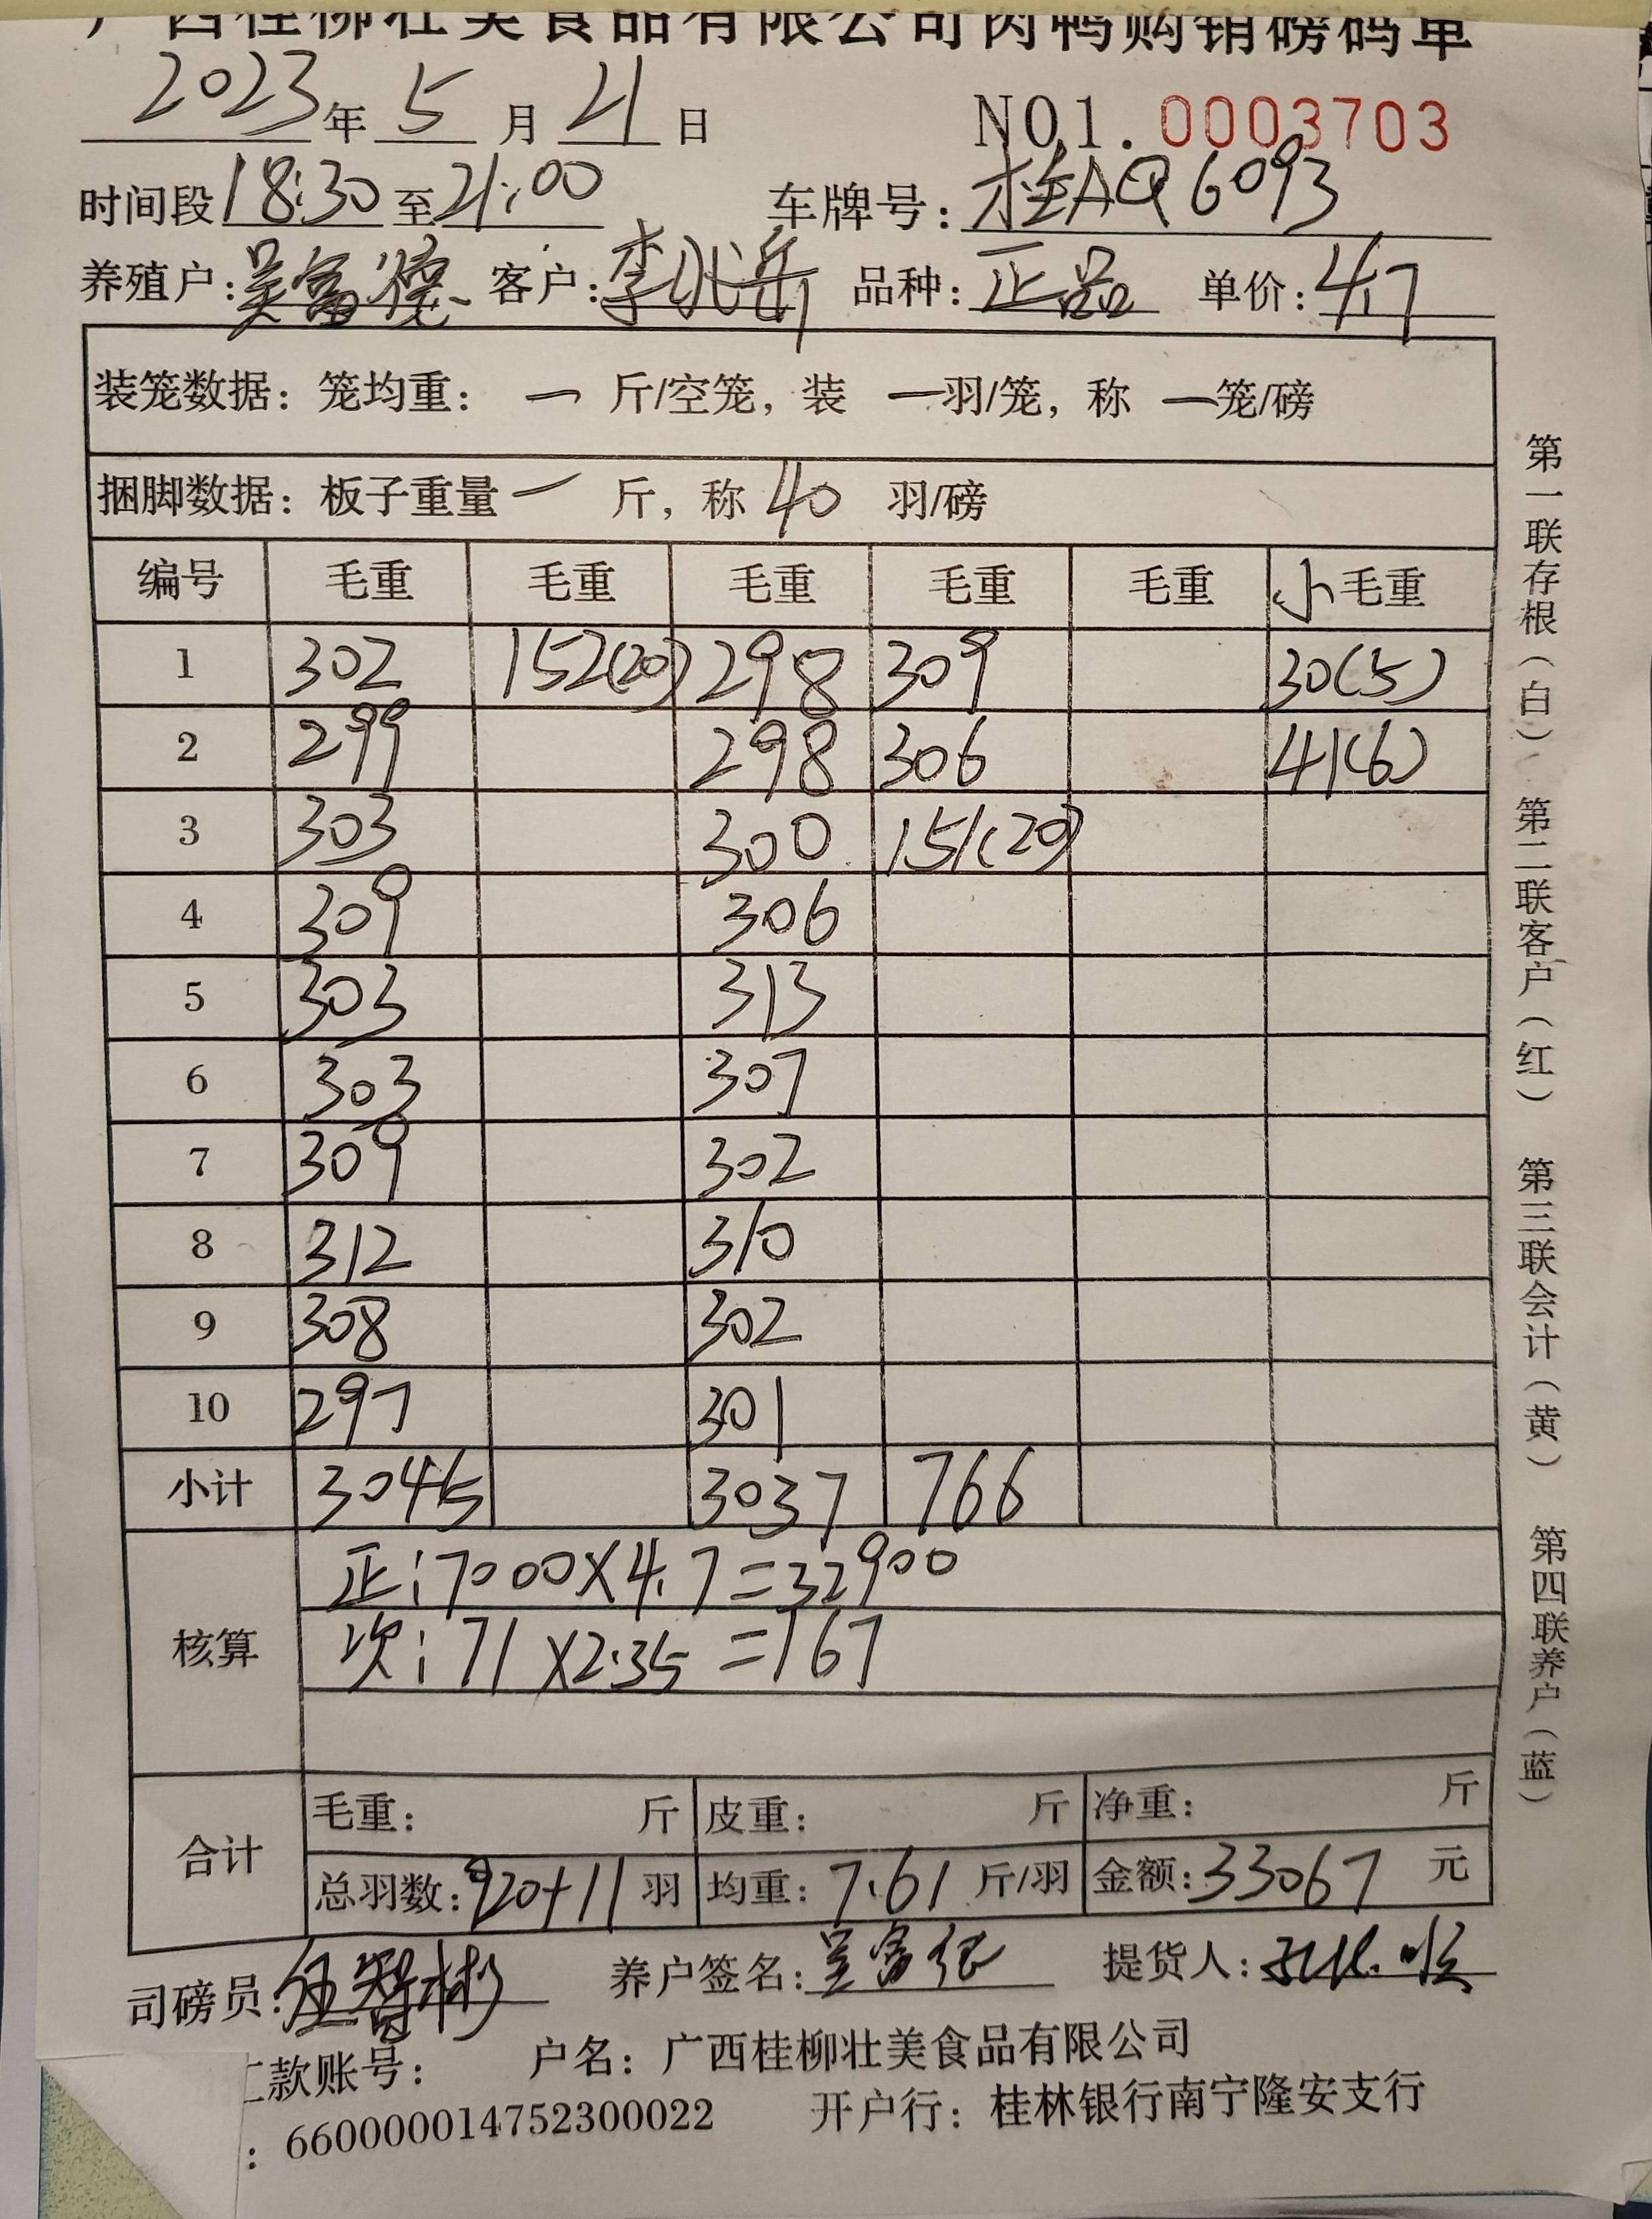 广西桂柳壮美食品有限公司肉鸭购销磅码单
2023年 5 月 21 日 NO1. 0003703
时间段 18:30 至 21:00 车牌号: 桂AQ6093
养殖户: 吴富 客户: 李兆岳 品种: 正品 单价: 4.7
装笼数据: 笼均重: — 斤/空笼, 装 —羽/笼, 称 —笼/磅
捆脚数据: 板子重量 — 斤, 称 40 羽/磅
编号 毛重 毛重 毛重 毛重 毛重 小毛重
1 302 152(20) 298 309 30(5)
2 299 298 306 41(6)
3 303 300 151(20)
4 309 306
5 303 313
6 303 307
7 309 302
8 312 310
9 308 302
10 297 301
小计 3045 3037 766
核算
正:7000×4.7=32900
次:71×2.35=167
合计
毛重: 斤 皮重: 斤 净重: 斤
总羽数: 920+11 羽 均重: 7.61 斤/羽 金额: 33067 元
司磅员: 伍智彬 养户签名: 吴富 提货人:
款账号: 户名: 广西桂柳壮美食品有限公司
: 660000014752300022 开户行: 桂林银行南宁隆安支行
第一联存根(白) 第二联客户(红) 第三联会计(黄) 第四联养户(蓝)